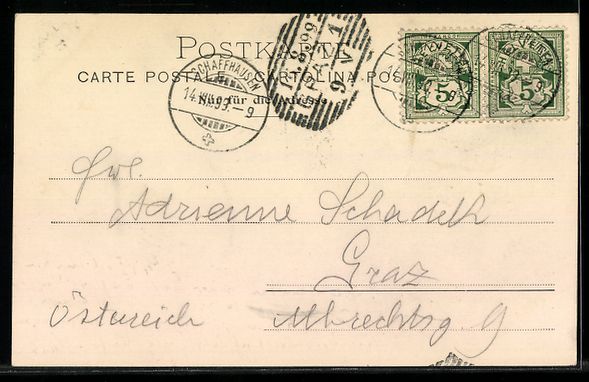 POSTKARTE
CARTE POSTALE. CARTOLINA POSTALE
Nur für die Adresse
SCHAFFHAUSEN
14.VIII.99.-9
GRAZ 1
9 V
5 5
Frl.
Adrienne Schadekh
Graz
Österreich Albrechtsg. 9